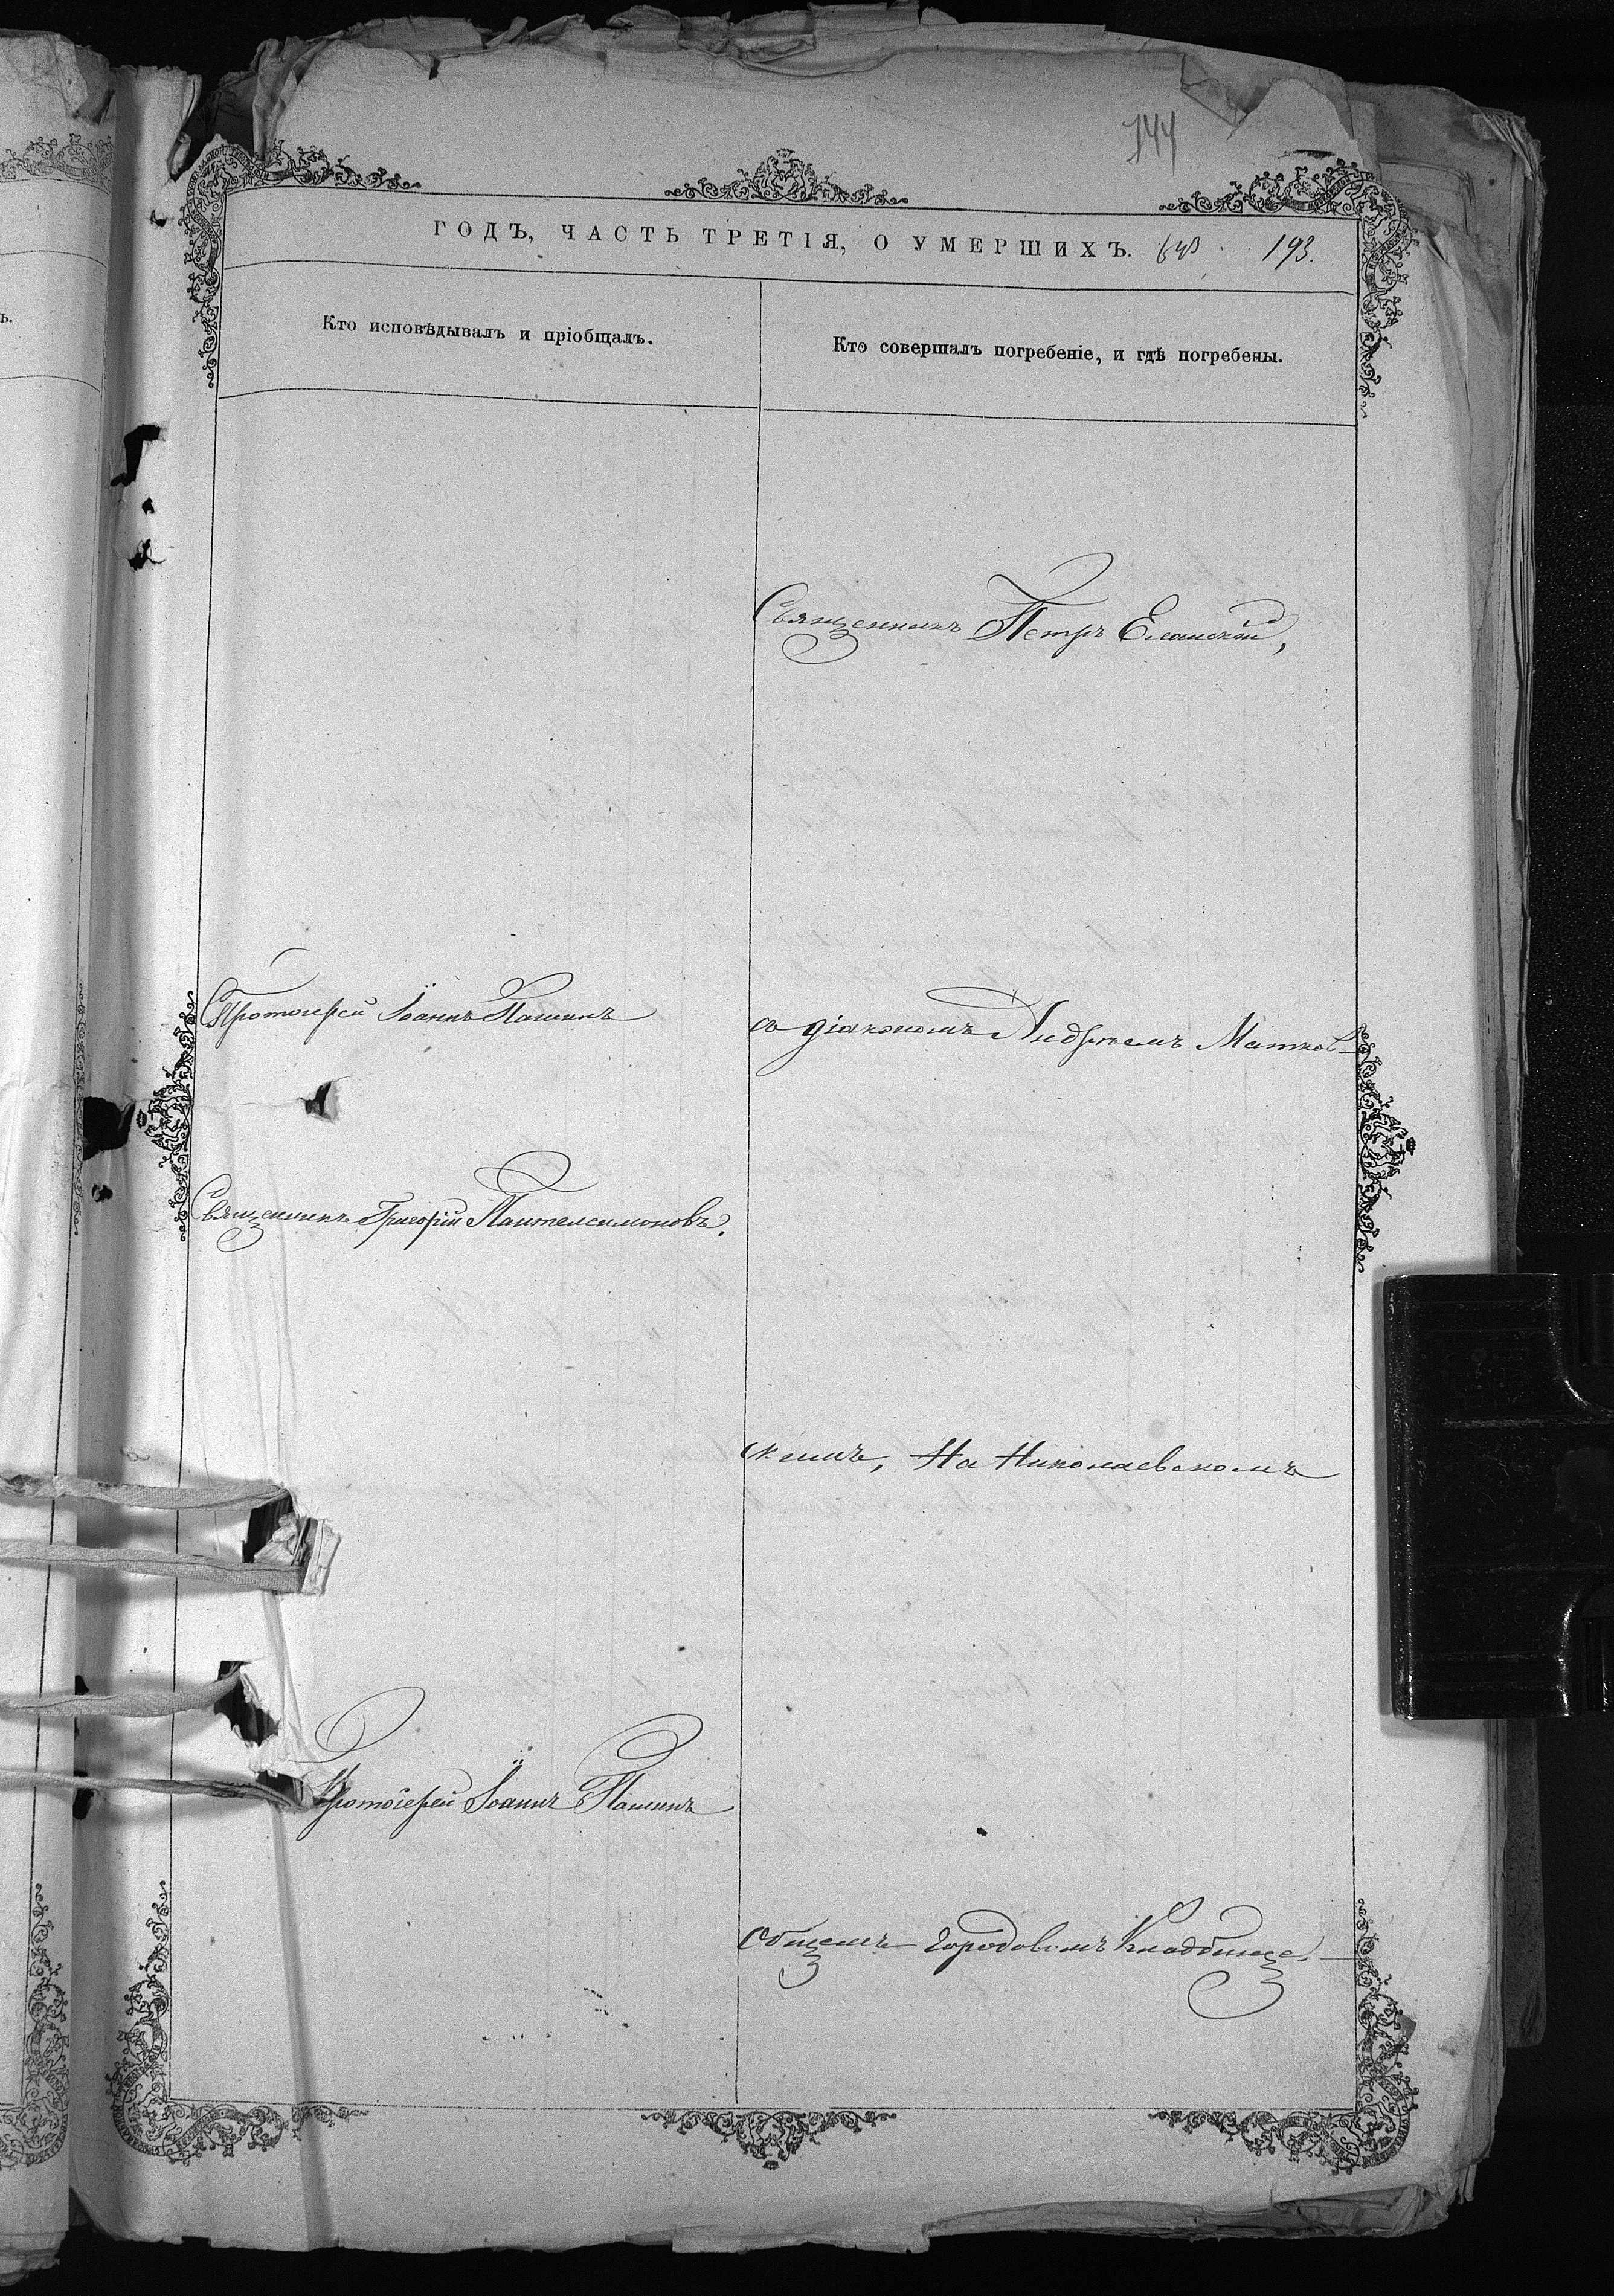 144
ГОДЪ, ЧАСТЬ ТРЕТІЯ, О УМЕРШИХЪ. 193.
Кто исповѣдывалъ и пріобщалъ.
Кто совершалъ погребеніе, и гдѣ погребены.
Священникъ Петръ Еланскій,
Протоіерей Іоаннъ Пашинъ
съ діакономъ Андреемъ Матков-
Священникъ Григорій Пантелеимоновъ.
скимъ, На Николаевскомъ
Протоіерей Іоаннъ Пашинъ
Общемъ городовомъ Кладбище.